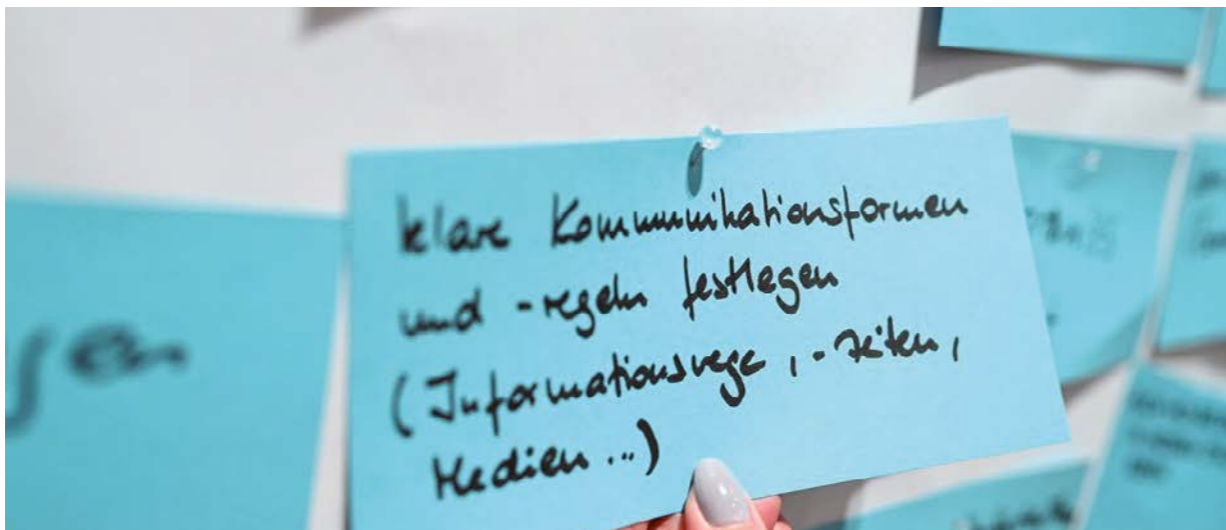 klare Kommunikationsformen
und -regeln festlegen
(Informationswege, -zeiten,
Medien...)